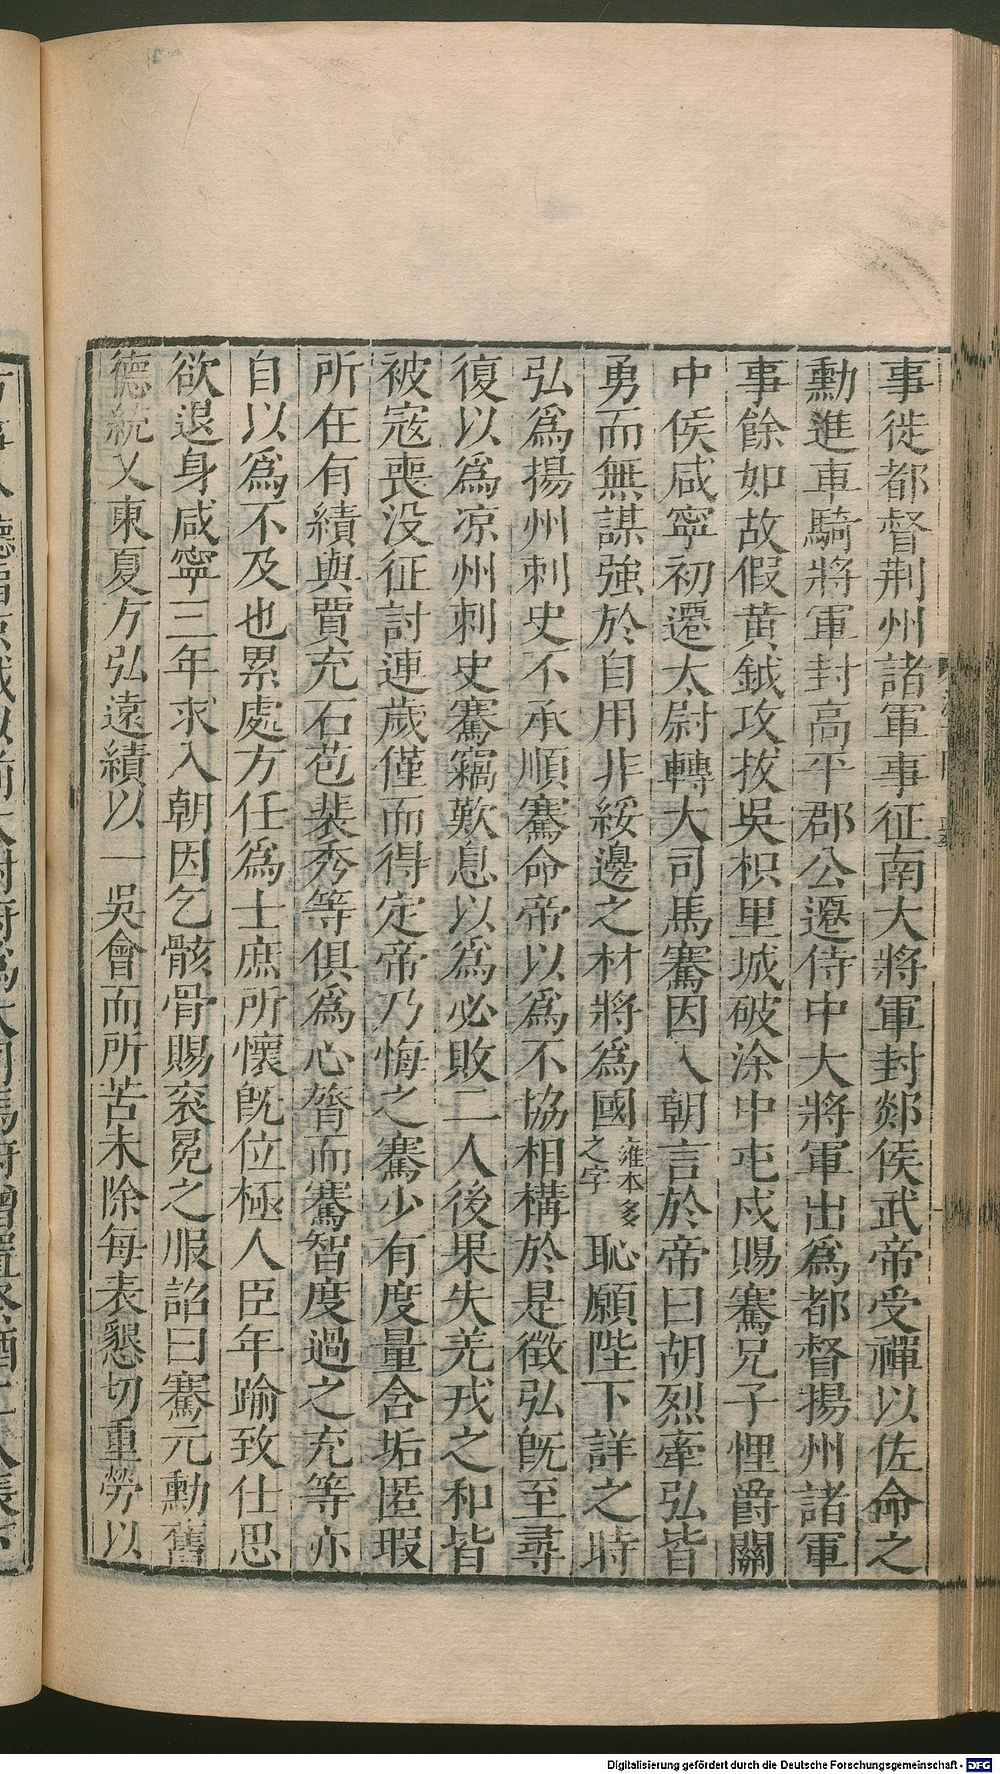 事徙都督荆州諸軍事征南大將軍封郯侯武帝受禪以佐命之
勳進車騎將軍封高平郡公遷侍中大將軍出爲都督揚州諸軍
事餘如故假黃鉞攻拔吳枳里城破涂中屯戍賜騫兄子悝爵關
中侯咸寧初遷太尉轉大司馬騫因入朝言於帝曰胡烈牽弘皆
勇而無謀強於自用非綏邊之材將爲國雍本多之字恥願陛下詳之時
弘爲揚州刺史不承順騫命帝以爲不協相構於是徵弘旣至尋
復以爲凉州刺史騫竊歎息以爲必敗二人後果失羌戎之和皆
被寇喪没征討連歲僅而得定帝乃悔之騫少有度量含垢匿瑕
所在有績與賈充石苞裴秀等俱爲心膂而騫智度過之充等亦
自以爲不及也累處方任爲士庶所懷旣位極人臣年踰致仕思
欲退身咸寧三年求入朝因乞骸骨賜衮冕之服詔曰騫元勳舊
德統乂東夏方弘遠績以一吳會而所苦未除每表懇切重勞以
Digitalisierung gefördert durch die Deutsche Forschungsgemeinschaft - DFG